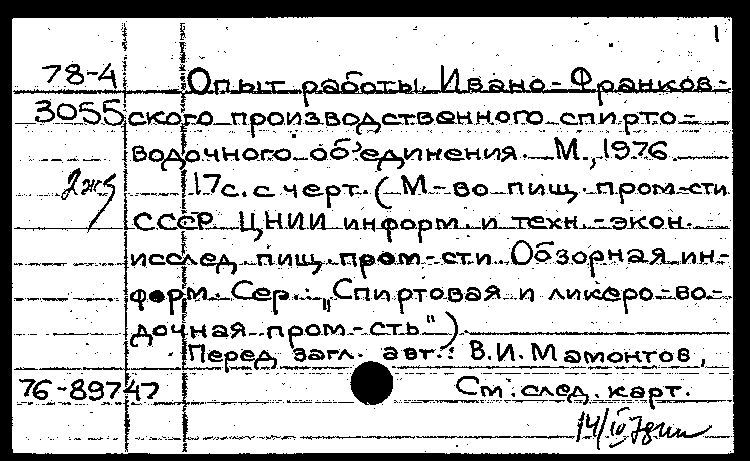 1
78-4 Опыт работы Ивано-Франков-
3055 ского производственного спирто-
водочного об'единения. М., 1976.
17с. с черт. (М-во пищ. пром-сти
СССР. ЦНИИ информ. и техн.-экон.
исслед. пищ. пром-сти. Обзорная ин-
форм. Сер.: „Спиртовая и ликеро-во-
дочная пром-сть").
Перед загл. авт.: В.И.Мамонтов,
76-89747 См. след. карт.